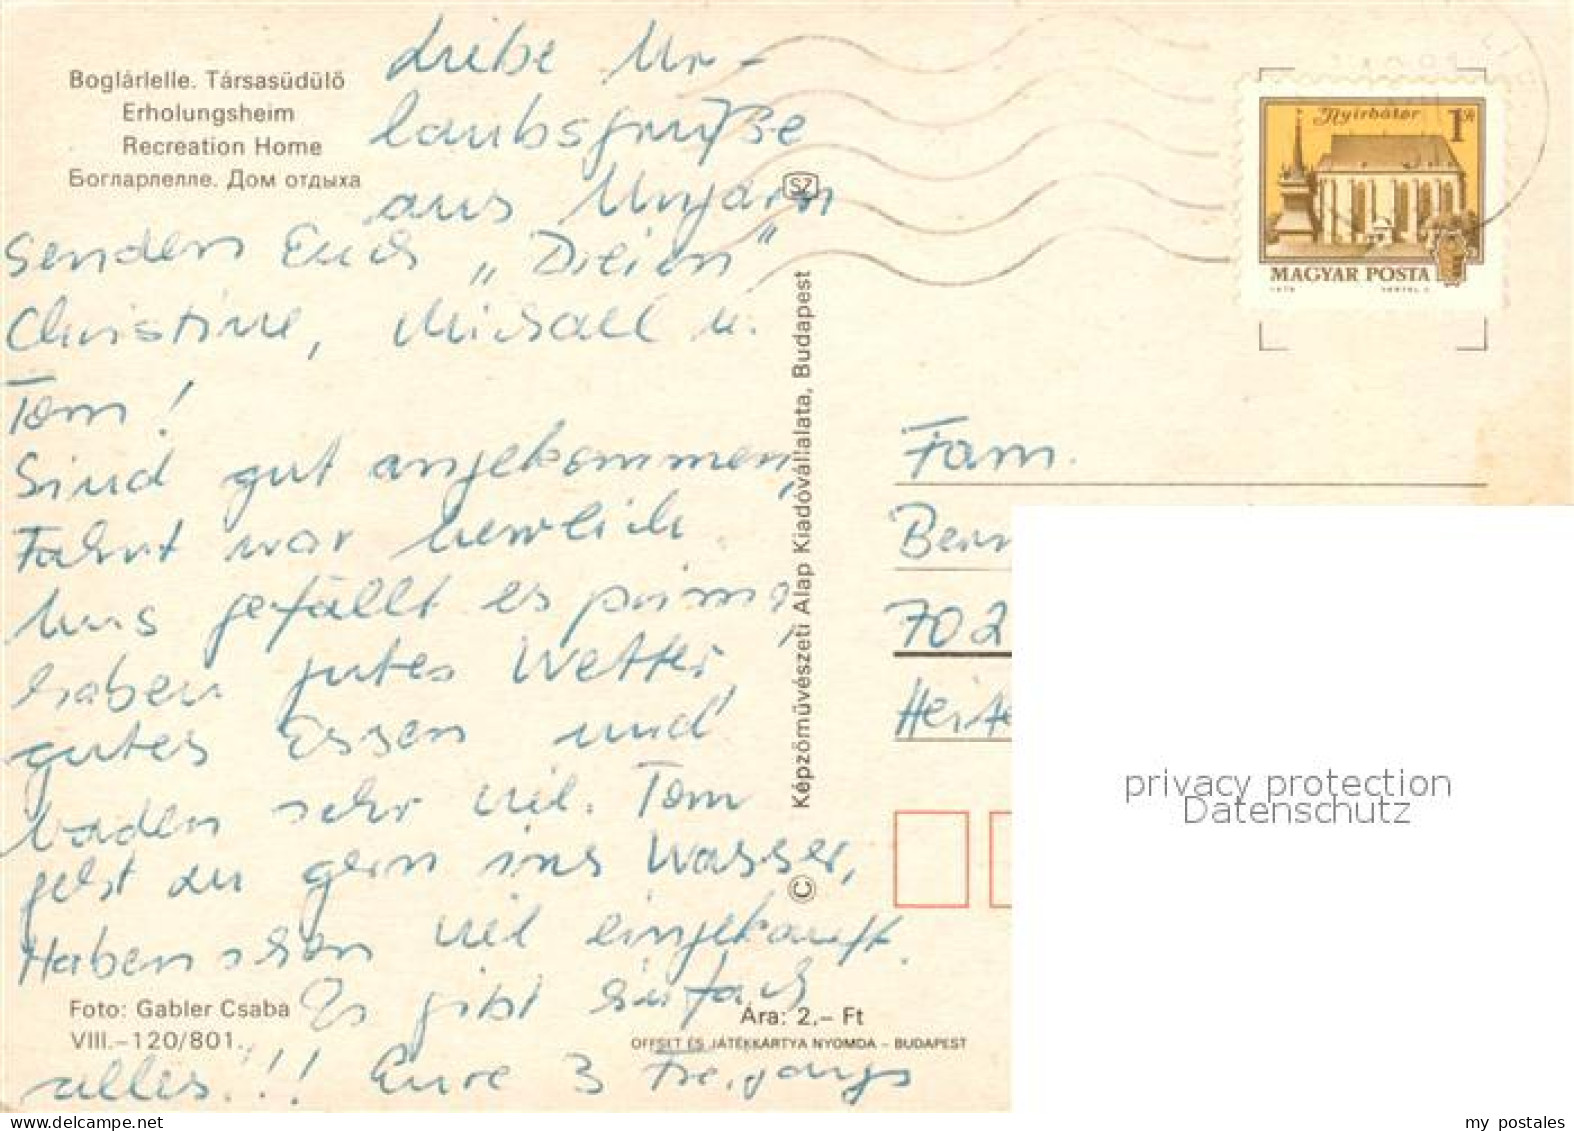 Boglárlelle. Társasüdülő
Erholungsheim
Recreation Home
Богларлелле. Дом отдыха
Liebe Ur-
laubsgrüße
aus Ungarn
senden Euch „Dreien"
Christine, Michael u.
Tom!
Sind gut angekommen,
Fahrt war herrlich
Uns gefällt es prima,
haben gutes Wetter,
gutes Essen und
baden sehr viel. Tom
geht zu gern ins Wasser,
Haben schon viel eingekauft.
Es gibt einfach
alles!!! Eure 3 Freigangs
Foto: Gabler Csaba
VIII.–120/801.
Ára: 2,– Ft
OFFSET ÉS JÁTÉKKÁRTYA NYOMDA – BUDAPEST
© Képzőművészeti Alap Kiadóvállalata, Budapest
SZ
Nyírbátor 1 Ft
MAGYAR POSTA
Fam.
702
privacy protection
Datenschutz
my postales